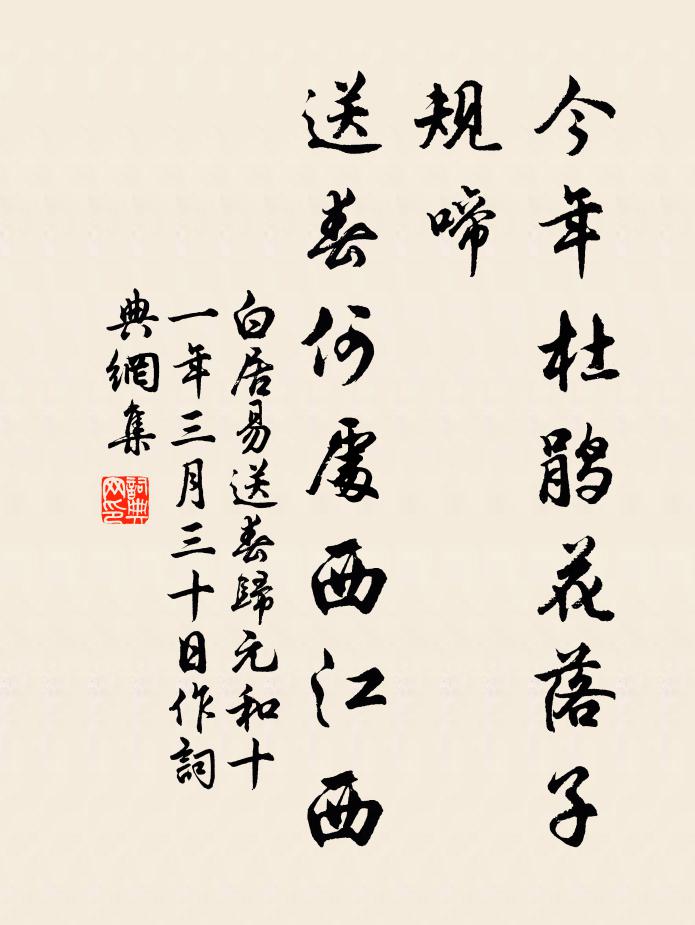 今年杜鹃花落子
规啼
送春何處西江西
白居易送春歸元和十
一年三月三十日作詞
典網集
詞典
网印